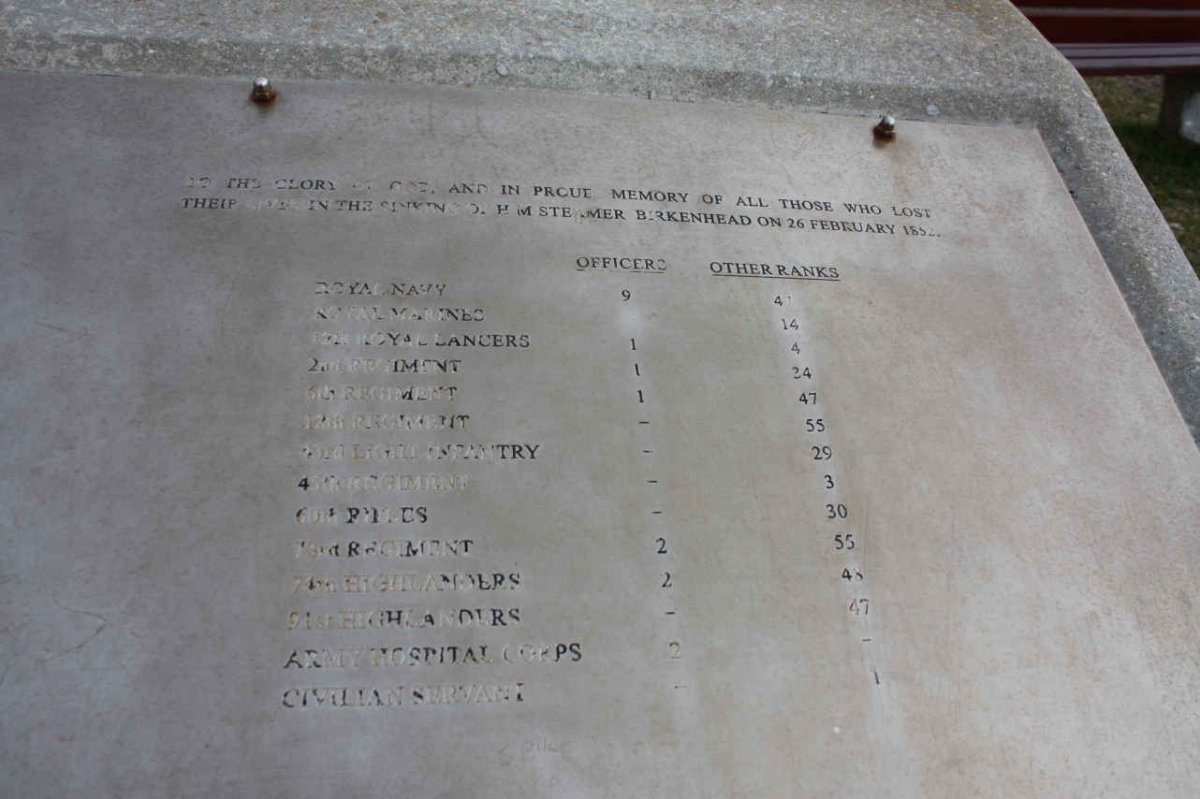 TO THE GLORY OF GOD, AND IN PROUD MEMORY OF ALL THOSE WHO LOST
THEIR LIVES IN THE SINKING OF H M STEAMER BIRKENHEAD ON 26 FEBRUARY 1852.
OFFICERS OTHER RANKS
ROYAL NAVY 9
ROYAL MARINES 14
12th ROYAL LANCERS 1 4
2nd REGIMENT 1 24
6th REGIMENT 1 47
12th REGIMENT – 55
43rd LIGHT INFANTRY – 29
REGIMENT – 3
60th RIFLES – 30
73rd REGIMENT 2 55
74th HIGHLANDERS 2 48
91st HIGHLANDERS – 47
ARMY HOSPITAL CORPS 2 –
CIVILIAN SERVANT – 1